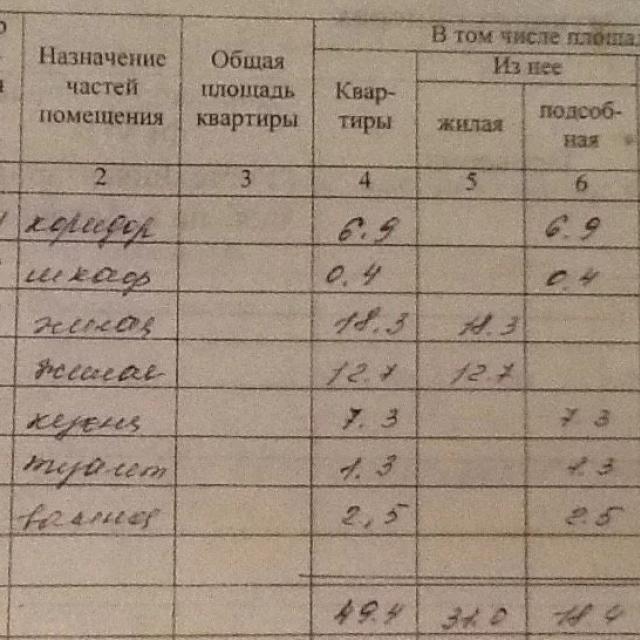 В том числе площа
Назначение частей помещения Общая площадь квартиры Квар-тиры Из нее
жилая подсоб-ная
2 3 4 5 6
коридор 6.9 6.9
шкаф 0.4 0.4
жилая 18.3 18.3
жилая 12.7 12.7
кухня 7.3 7.3
туалет 1.3 1.3
ванная 2,5 2.5
49.4 31.0 18.4